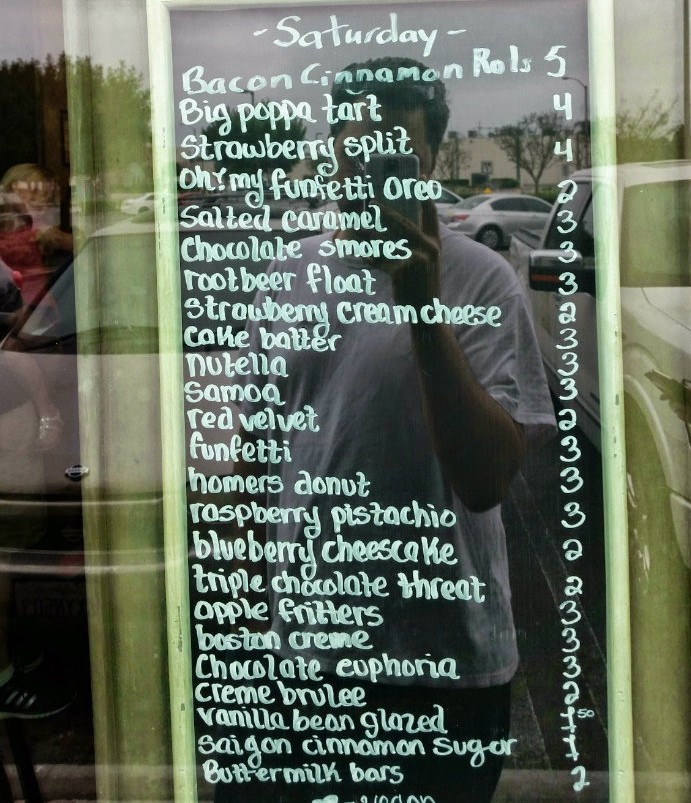 - Saturday -
Bacon Cinnamon Rols 5
Big poppa tart 4
Strawberry split 4
Oh! my funfetti Oreo 2
Salted caramel 3
Chocolate smores 3
rootbeer float 3
Strawberry creamcheese 2
cake batter 3
nutella 3
Samoa 3
red velvet 2
funfetti 3
homers donut 3
raspberry pistachio 3
blueberry cheescake 2
triple chocolate threat 2
apple fritters 3
boston creme 3
Chocolate euphoria 3
creme brulee 2
vanilla bean glazed 1 50
Saigon cinnamon sugar 1
Buttermilk bars 2